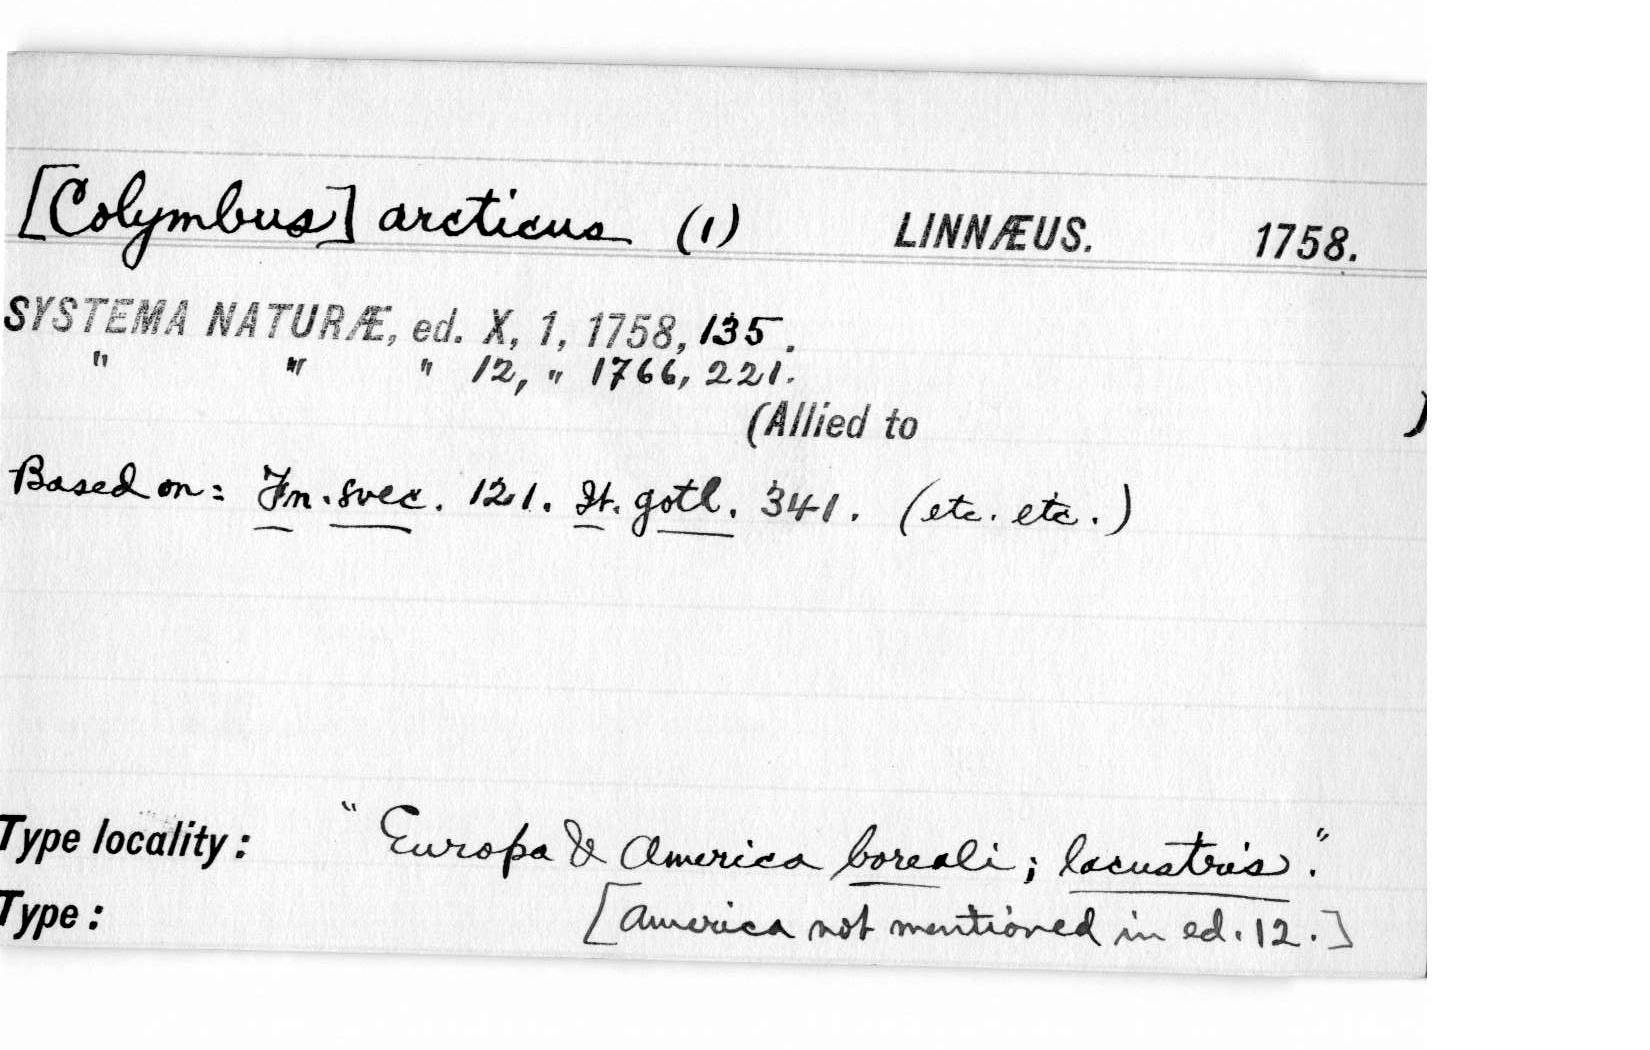 [Colymbus] arcticus (1) LINNÆUS. 1758.
SYSTEMA NATURÆ, ed. X, 1, 1758, 135.
" " " 12, " 1766, 221.
(Allied to )
Based on: Fn. svec. 121. It. gotl. 341. (etc. etc.)
Type locality: "Europa & America boreali; lacustris."
Type: [America not mentioned in ed. 12.]